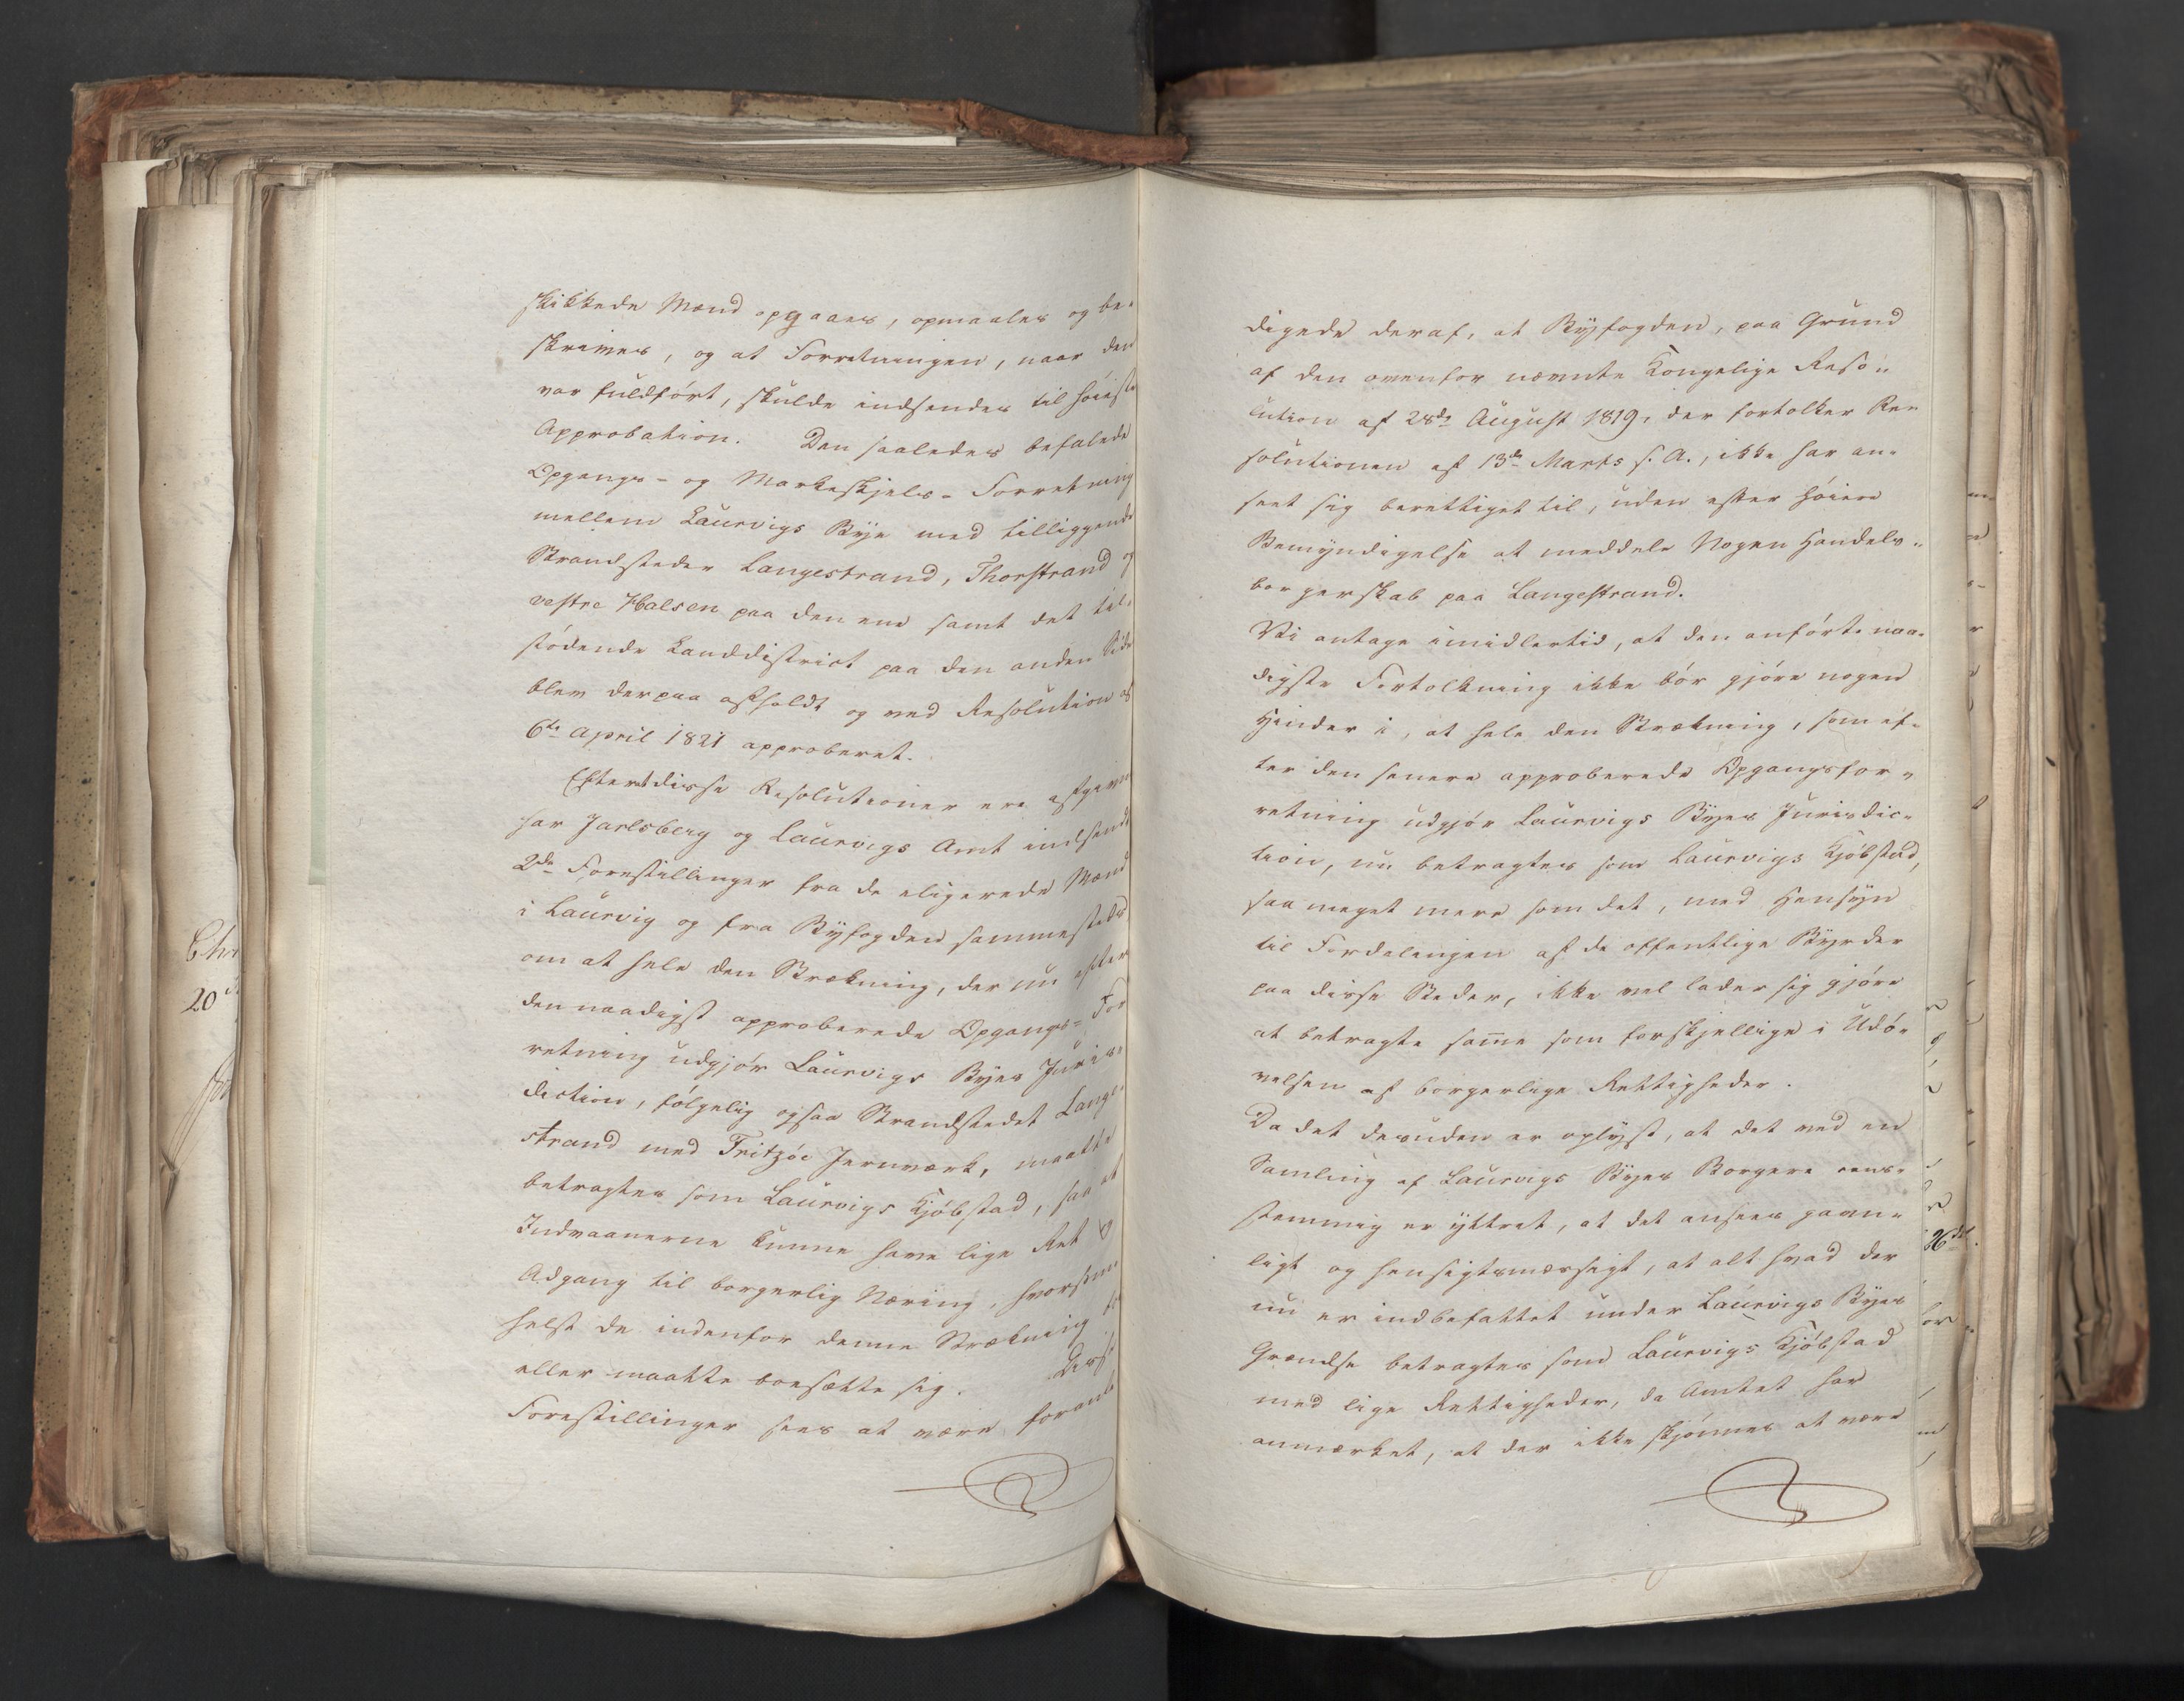 skikkede Mænd opgaaes, opmaales og be-
skrives, og at Forretningen, naar den
var fuldført, skulde indsendes til høieste
Approbation. Den saaledes befalede
Opgangs- og Markeskjels-Forretning
mellem Laurvigs Bye med tilliggende
Strandsteder Langestrand, Thorstrand og
vestre Halsen paa den ene samt det til-
stødende Landdistrict paa den anden Side
blev derpaa afholdt og ved Resolution af
6te April 1821 approberet.
Efterat disse Resolutioner ere afgivne
har Jarlsberg og Laurvigs Amt indsendt
2de Forestillinger fra de eligerede Mænd
i Laurvig og fra Byfogden sammesteds
om at hele den Strækning, der nu efter
den naadigst approberede Opgangs-For
retning udgjør Laurvigs Byes Juris-
diction, følgelig ogsaa Strandstedet Lange-
strand med Fritzøe Jernværk, maatte
betragtes som Laurvigs Kjøbstad, saa at
Indvaanerne kunne have lige Ret og
Adgang til borgerlig Næring, hvorsom
helst de indenfor denne Strækning
eller maatte boesætte sig. Disse
Forestillinger sees at være foran-
digede deraf, at Byfogden, paa Grund
af den ovenfor nævnte Kongelige Reso-
lution af 28de August 1819, der fortolker Re-
solutionen af 13de Marts s. A., ikke har an-
seet sig berettiget til, uden efter høiere
Bemyndigelse at meddele Nogen Handels-
borgerskab paa Langestrand.
Vi antage imidlertid, at den anførte naa-
digste Fortolkning ikke bør gjøre nogen
Hinder i, at hele den Strækning, som ef-
ter den senere approberede Opgangsfor-
retning udgjør Laurvigs Byes Jurisdic-
tion, nu betragtes som Laurvigs Kjøbstad,
saa meget mere som det, med Hensyn
til Fordelingen af de offentlige Byrder
paa disse Steder, ikke vel lader sig gjøre
at betragte samme som forskjellige i Udø-
velsen af borgerlige Rettigheder.
Da det desuden er oplyst, at det ved en
Samling af Laurvigs Byes Borgere eens-
stemmig er yttret, at det ansees gavn-
ligt og hensigtsmæssigt, at alt hvad der
nu er indbefattet under Laurvigs Byes
Grændse betragtes som Laurvigs Kjøbstad
med lige Rettigheder, da Amtet har
anmærket, at der ikke skjønnes at være